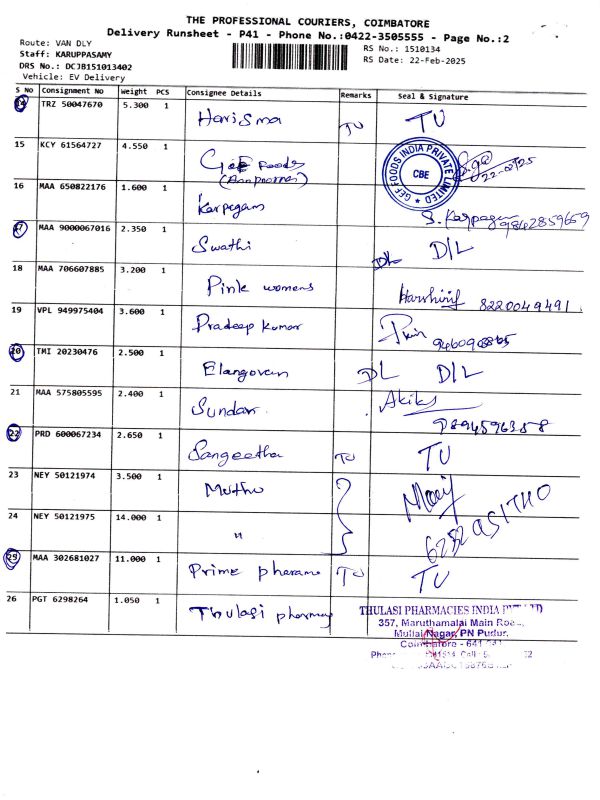 THE PROFESSIONAL COURIERS, COIMBATORE
Delivery Runsheet - P41 - Phone No.:0422-3505555 - Page No.:2
Route: VAN DLY
Staff: KARUPPASAMY
DRS No.: DCJB151013402
Vehicle: EV Delivery
RS No.: 1510134
RS Date: 22-Feb-2025
S No Consignment No Weight PCS Consignee Details Remarks Seal & Signature
14 TRZ 50047670 5.300 1 Harisma TU TU
15 KCY 61564727 4.550 1 Gef Foods
GEF FOODS INDIA PRIVATE LIMITED CBE
22-02-25
16 MAA 650822176 1.600 1 Karpagam S. Karpagam
9842859659
17 MAA 9000067016 2.350 1 Swathi DL D/L
18 MAA 706607885 3.200 1 Pink womens 8220049491
19 VPL 949975404 3.600 1 Pradeep kumar
20 TMI 20230476 2.500 1 Elangovan DL D/L
21 MAA 575805595 2.400 1 Sundar
9894596358
22 PRD 600067234 2.650 1 Sangeetha TU TU
23 NEY 50121974 3.500 1 Muthu
24 NEY 50121975 14.000 1 "
25 MAA 302681027 11.000 1 Prime pharama TU TU
26 PGT 6298264 1.050 1 Thulasi pharmacy
THULASI PHARMACIES INDIA
357, Maruthamalai Main Road,
Mullai Nagar, PN Pudur,
Coimbatore - 641